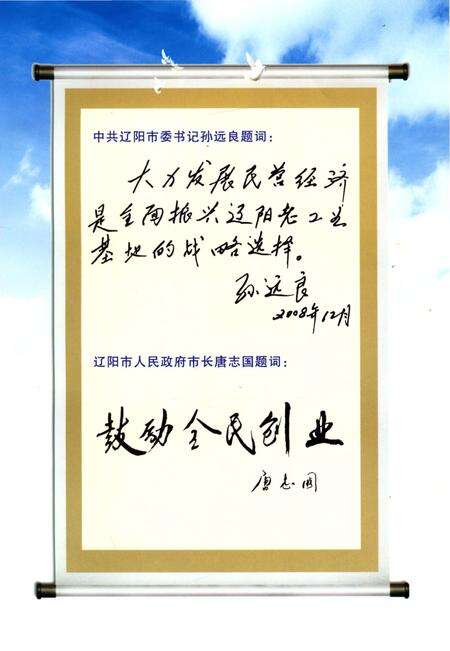 中共辽阳市委书记孙远良题词：
大力发展民营经济
是全面振兴辽阳老工业
基地的战略选择。
孙远良
2008年12月
辽阳市人民政府市长唐志国题词：
鼓励全民创业
唐志国